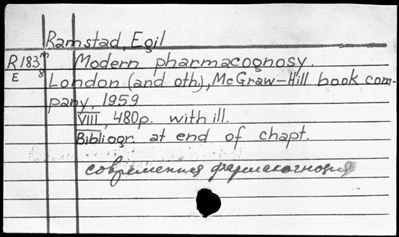 Ramstad, Egil
R183
E 8
Modern pharmacognosy.
London (and oth), McGraw-Hill book com-
pany, 1959
VIII, 480p. with ill.
Bibliogr. at end of chapt.
современная фармакогнозия